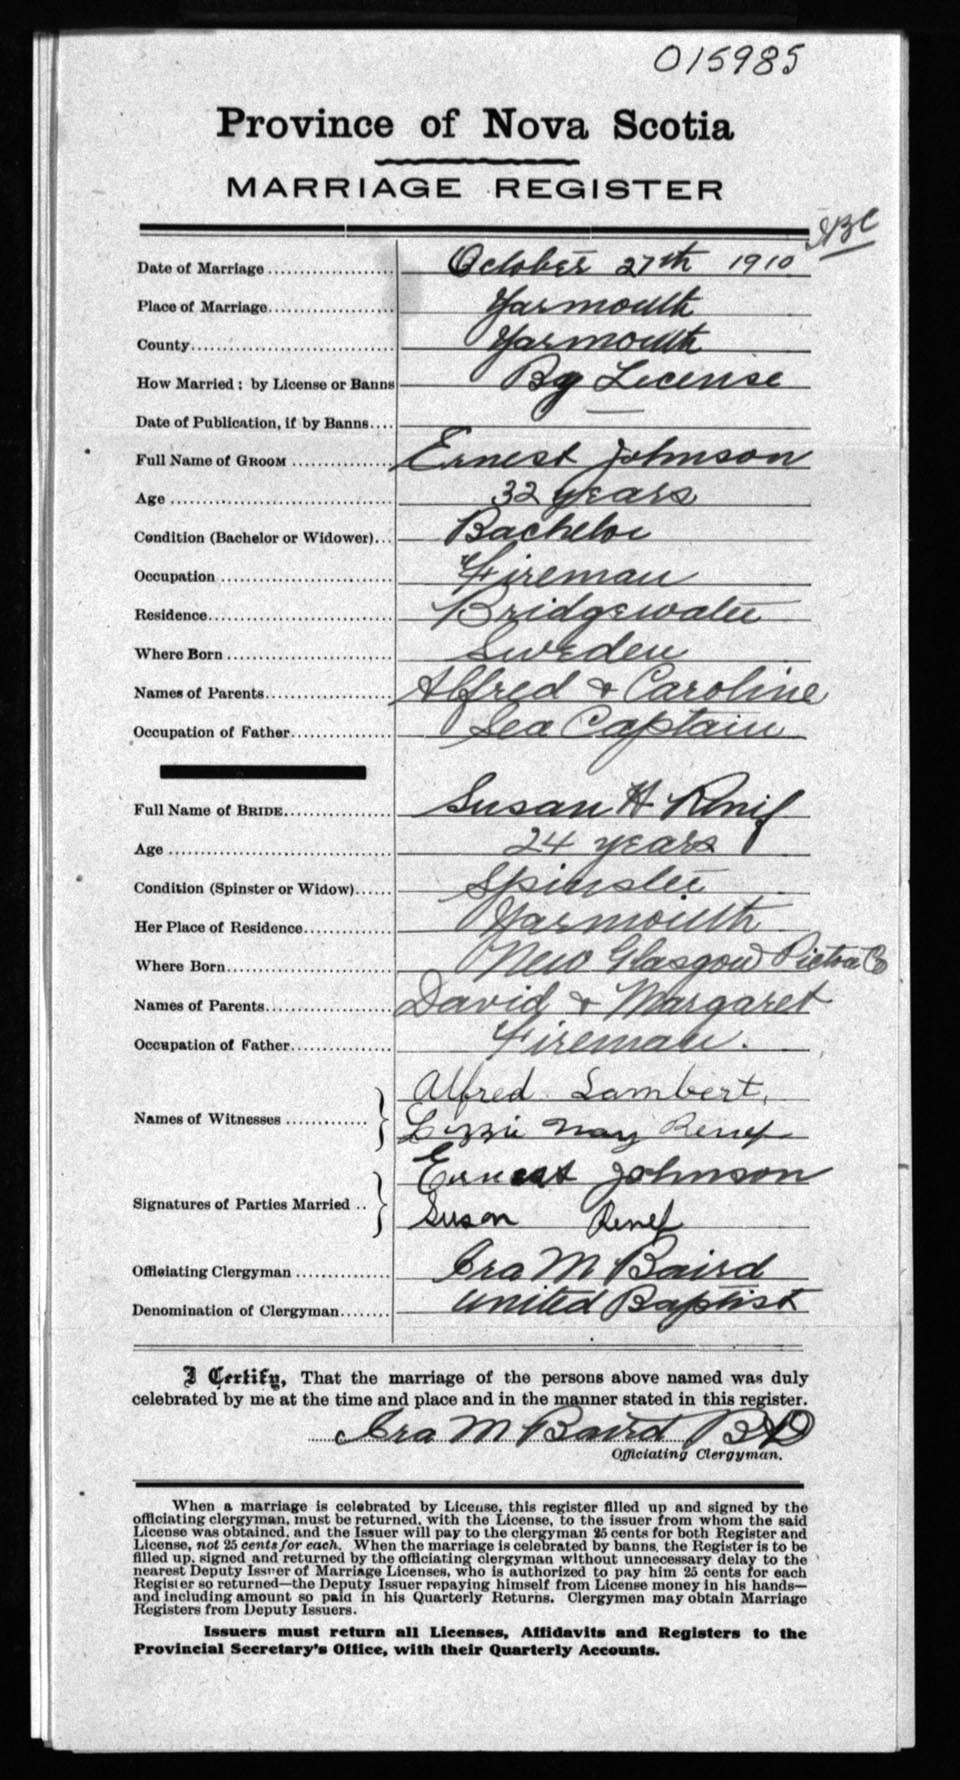 015985
Province of Nova Scotia
MARRIAGE REGISTER
Date of Marriage .................... October 27th 1910
Place of Marriage.................... Yarmouth
County.............................. Yarmouth
How Married: by License or Banns By License
Date of Publication, if by Banns.... —
Full Name of GROOM ............... Ernest Johnson
Age ................................. 32 years
Condition (Bachelor or Widower)... Bachelor
Occupation .......................... Fireman
Residence............................ Bridgewater
Where Born ......................... Sweden
Names of Parents................... Alfred & Caroline
Occupation of Father............... Sea Captain
Full Name of BRIDE................. Susan H
Age .................................. 24 years
Condition (Spinster or Widow)...... Spinster
Her Place of Residence............. Yarmouth
Where Born......................... New Glasgow Pictou Co
Names of Parents................... David & Margaret
Occupation of Father............... Fireman.
Names of Witnesses ............. } Alfred Lambert,
Lizzie May Renef
Signatures of Parties Married .. } Ernest Johnson
Susan Renef
Officiating Clergyman .............. Ira M Baird
Denomination of Clergyman........ United Baptist
I Certify, That the marriage of the persons above named was duly
celebrated by me at the time and place and in the manner stated in this register.
Ira M Baird BD
Officiating Clergyman.
When a marriage is celebrated by License, this register filled up and signed by the
officiating clergyman, must be returned, with the License, to the issuer from whom the said
License was obtained, and the Issuer will pay to the clergyman 25 cents for both Register and
License, not 25 cents for each. When the marriage is celebrated by banns, the Register is to be
filled up, signed and returned by the officiating clergyman without unnecessary delay to the
nearest Deputy Issuer of Marriage Licenses, who is authorized to pay him 25 cents for each
Register so returned—the Deputy Issuer repaying himself from License money in his hands—
and including amount so paid in his Quarterly Returns. Clergymen may obtain Marriage
Registers from Deputy Issuers.
Issuers must return all Licenses, Affidavits and Registers to the
Provincial Secretary's Office, with their Quarterly Accounts.